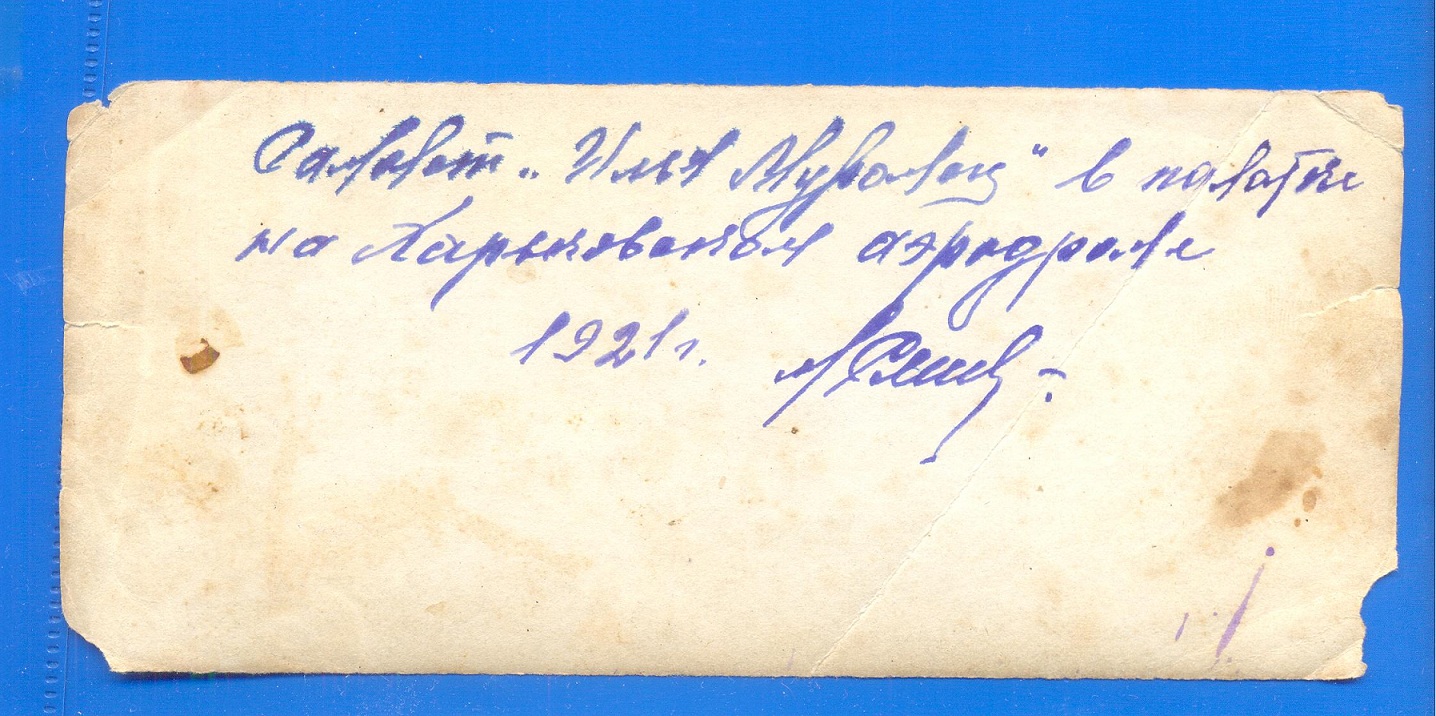 Самолет „Илья Муромец" в палатке
на Харьковском аэродроме
1921 г.